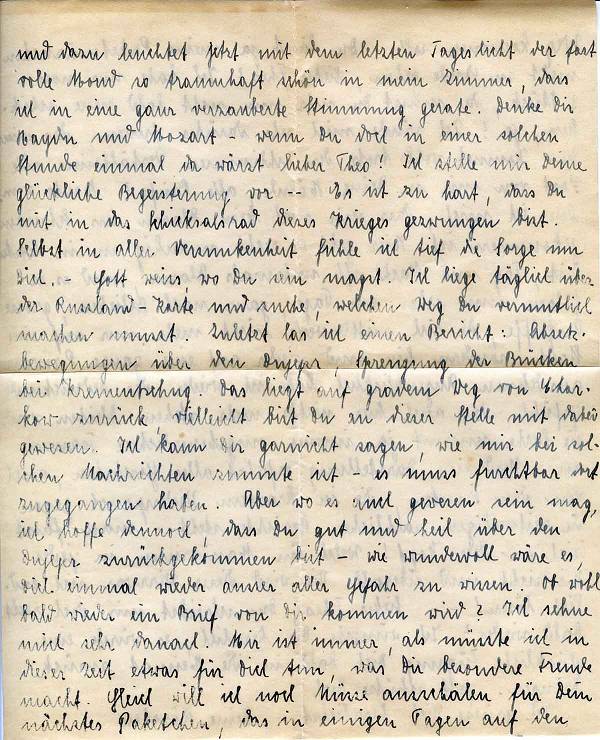 und dazu leuchtet jetzt mit dem letzten Tageslicht der fast
volle Mond so traumhaft schön in mein Zimmer, dass
ich in eine ganz verzauberte Stimmung gerate. Denke dir
Haydn und Mozart - wenn Du doch in einer solchen
Stunde einmal da wärst lieber Theo! Ich stelle mir Deine
glückliche Begeisterung vor -- Es ist zu hart, dass Du
mit in das Schicksalsrad dieses Krieges gezwungen bist.
Selbst in aller Versunkenheit fühle ich tief die Sorge um
Dich. - Gott weiss, wo Du sein magst. Ich liege täglich über
der Russland-Karte und suche, welchen Weg Du vermutlich
machen musst. Zuletzt las ich einen Bericht: Absetz-
bewegungen über den Dnjepr, Sprengung der Brücken
bei Krementschug. Das liegt auf gradem Weg von Char-
kow zurück, vielleicht bist Du an dieser Stelle mit dabei
gewesen. Ich kann Dir garnicht sagen, wie mir bei sol-
chen Nachrichten zumute ist - es muss furchtbar dort
zugegangen haben. Aber wo es auch gewesen sein mag,
ich hoffe dennoch, dass Du gut und heil über den
Dnjepr zurückgekommen bist - wie wundervoll wäre es,
Dich einmal wieder ausser aller Gefahr zu wissen. Ob wohl
bald wieder ein Brief von Dir kommen wird? Ich sehne
mich sehr danach. Mir ist immer, als müsste ich in
dieser Zeit etwas für Dich tun, was Dir besondere Freude
macht. Gleich will ich noch Nüsse ausschälen für Dein
nächstes Paketchen, das in einigen Tagen auf den